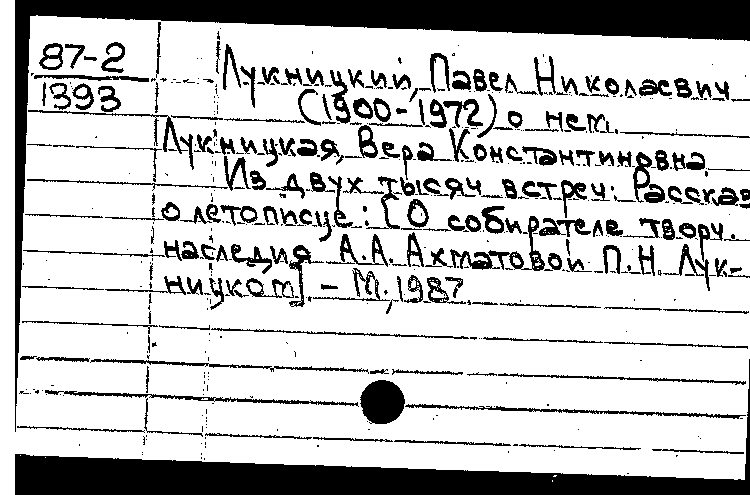 87-2
1393
Лукницкий, Павел Николаевич
(1900-1972) о нем.
Лукницкая, Вера Константиновна.
Из двух тысяч встреч: Рассказ
о летописце: [О собирателе творч.
наследия А.А. Ахматовой П.Н. Лук-
ницком]. - М., 1987.